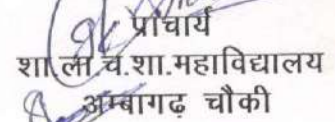 प्राचार्य
शा.ला.च.शा.महाविद्यालय
अम्बागढ़ चौकी